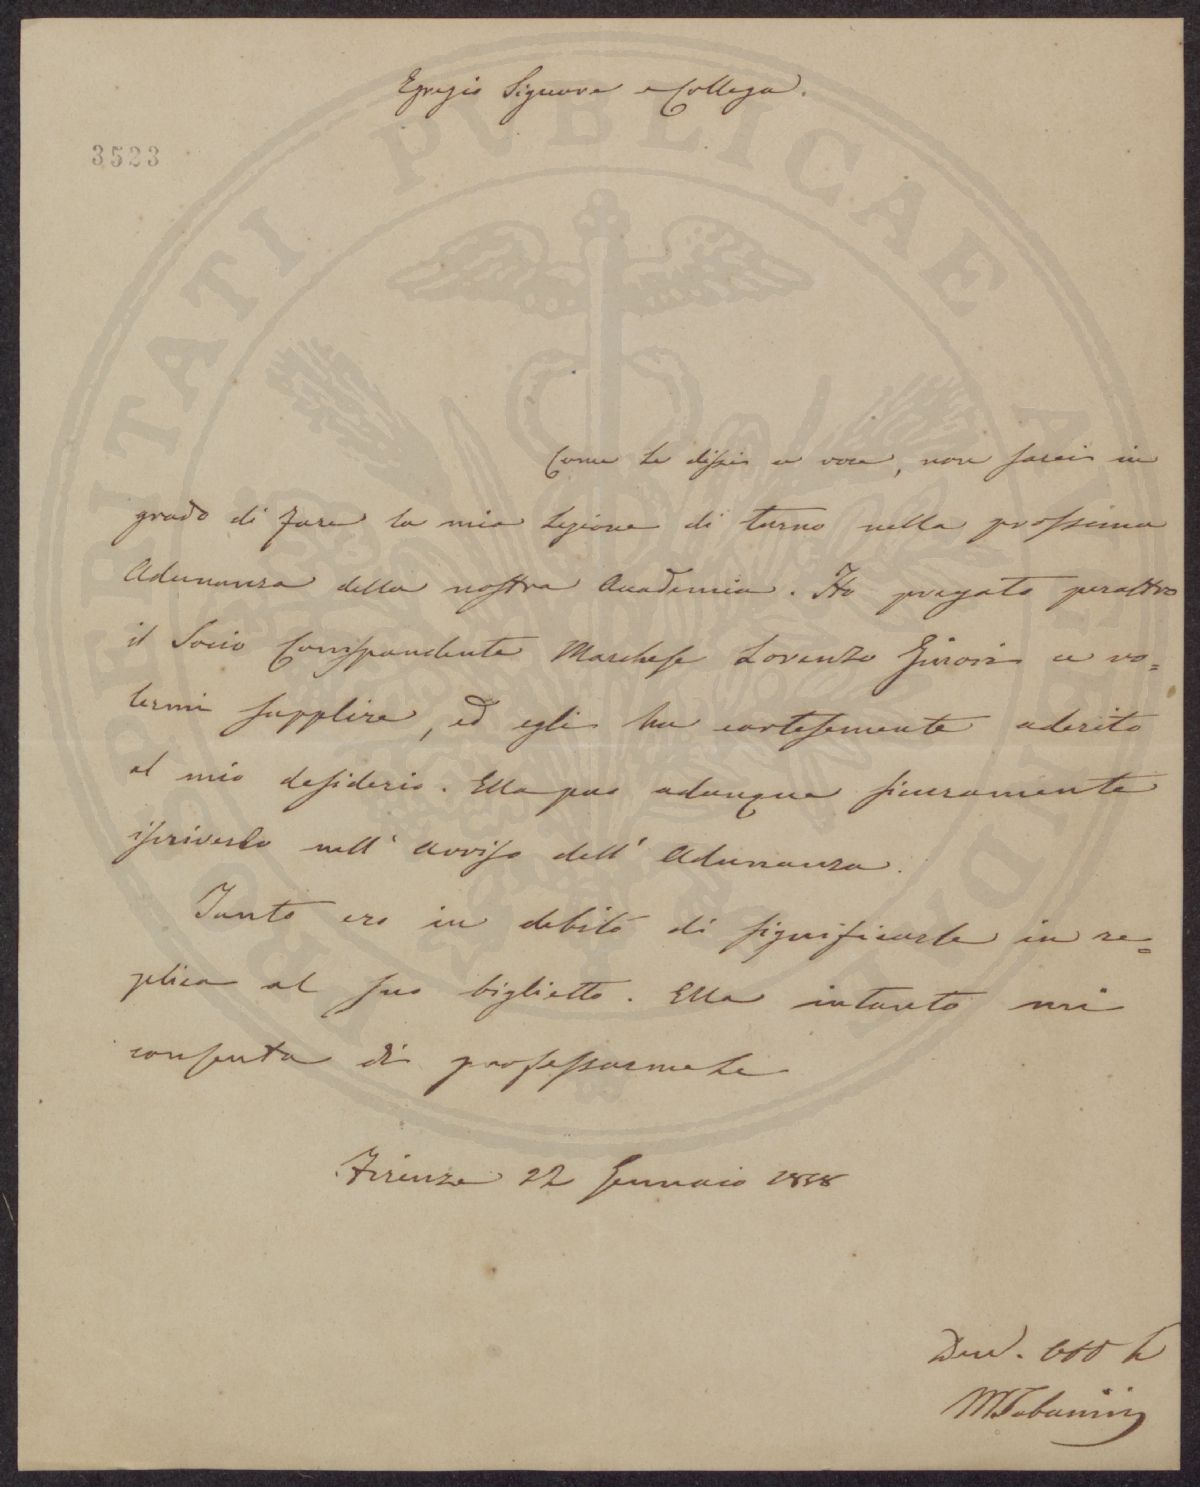 Egregio Signore e Collega.
3523
Come Le dissi a voce, non sarei in
grado di fare la mia Lezione di turno nella prossima
Adunanza della nostra Accademia. Ho pregato peraltro
il Socio Corrispondente Marchese Lorenzo Ginori a vo=
lermi supplire, ed egli ha cortesemente aderito
al mio desiderio. Ella può adunque sicuramente
iscriverlo nell' avviso dell' Adunanza.
Tanto ero in debito di significarle in re=
plica al suo biglietto. Ella intanto mi
consenta di professarmele
Firenze 22 Gennaio 1858
Dev.
M Tabarrini
PROSPERITATI PUBLICAE AUGENDAE